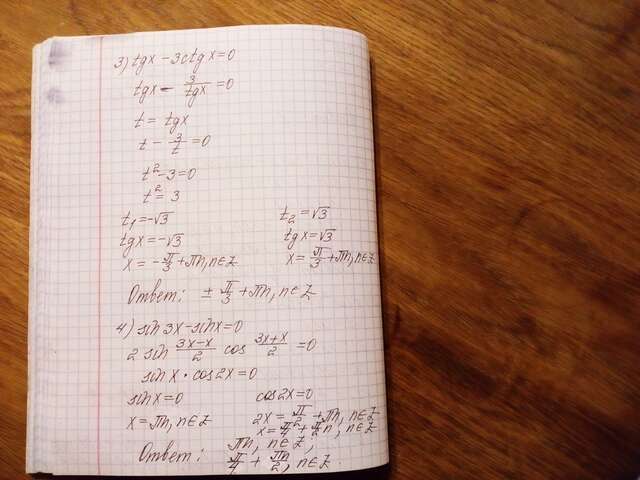 3) tgx - 3ctgx = 0
tgx - 3/tgx = 0
t = tgx
t - 3/t = 0
t² - 3 = 0
t² = 3
t₁ = -√3 t₂ = √3
tgx = -√3 tgx = √3
x = -π/3 + πn, n∈Z x = π/3 + πn, n∈Z
Ответ: ± π/3 + πn, n∈Z
4) sin3x - sinx = 0
2 sin (3x-x)/2 cos (3x+x)/2 = 0
sinx · cos2x = 0
sinx = 0 cos2x = 0
x = πn, n∈Z 2x = π/2 + πn, n∈Z
x = π/4 + π/2 n, n∈Z
Ответ: πn, n∈Z;
π/4 + πn/2, n∈Z.